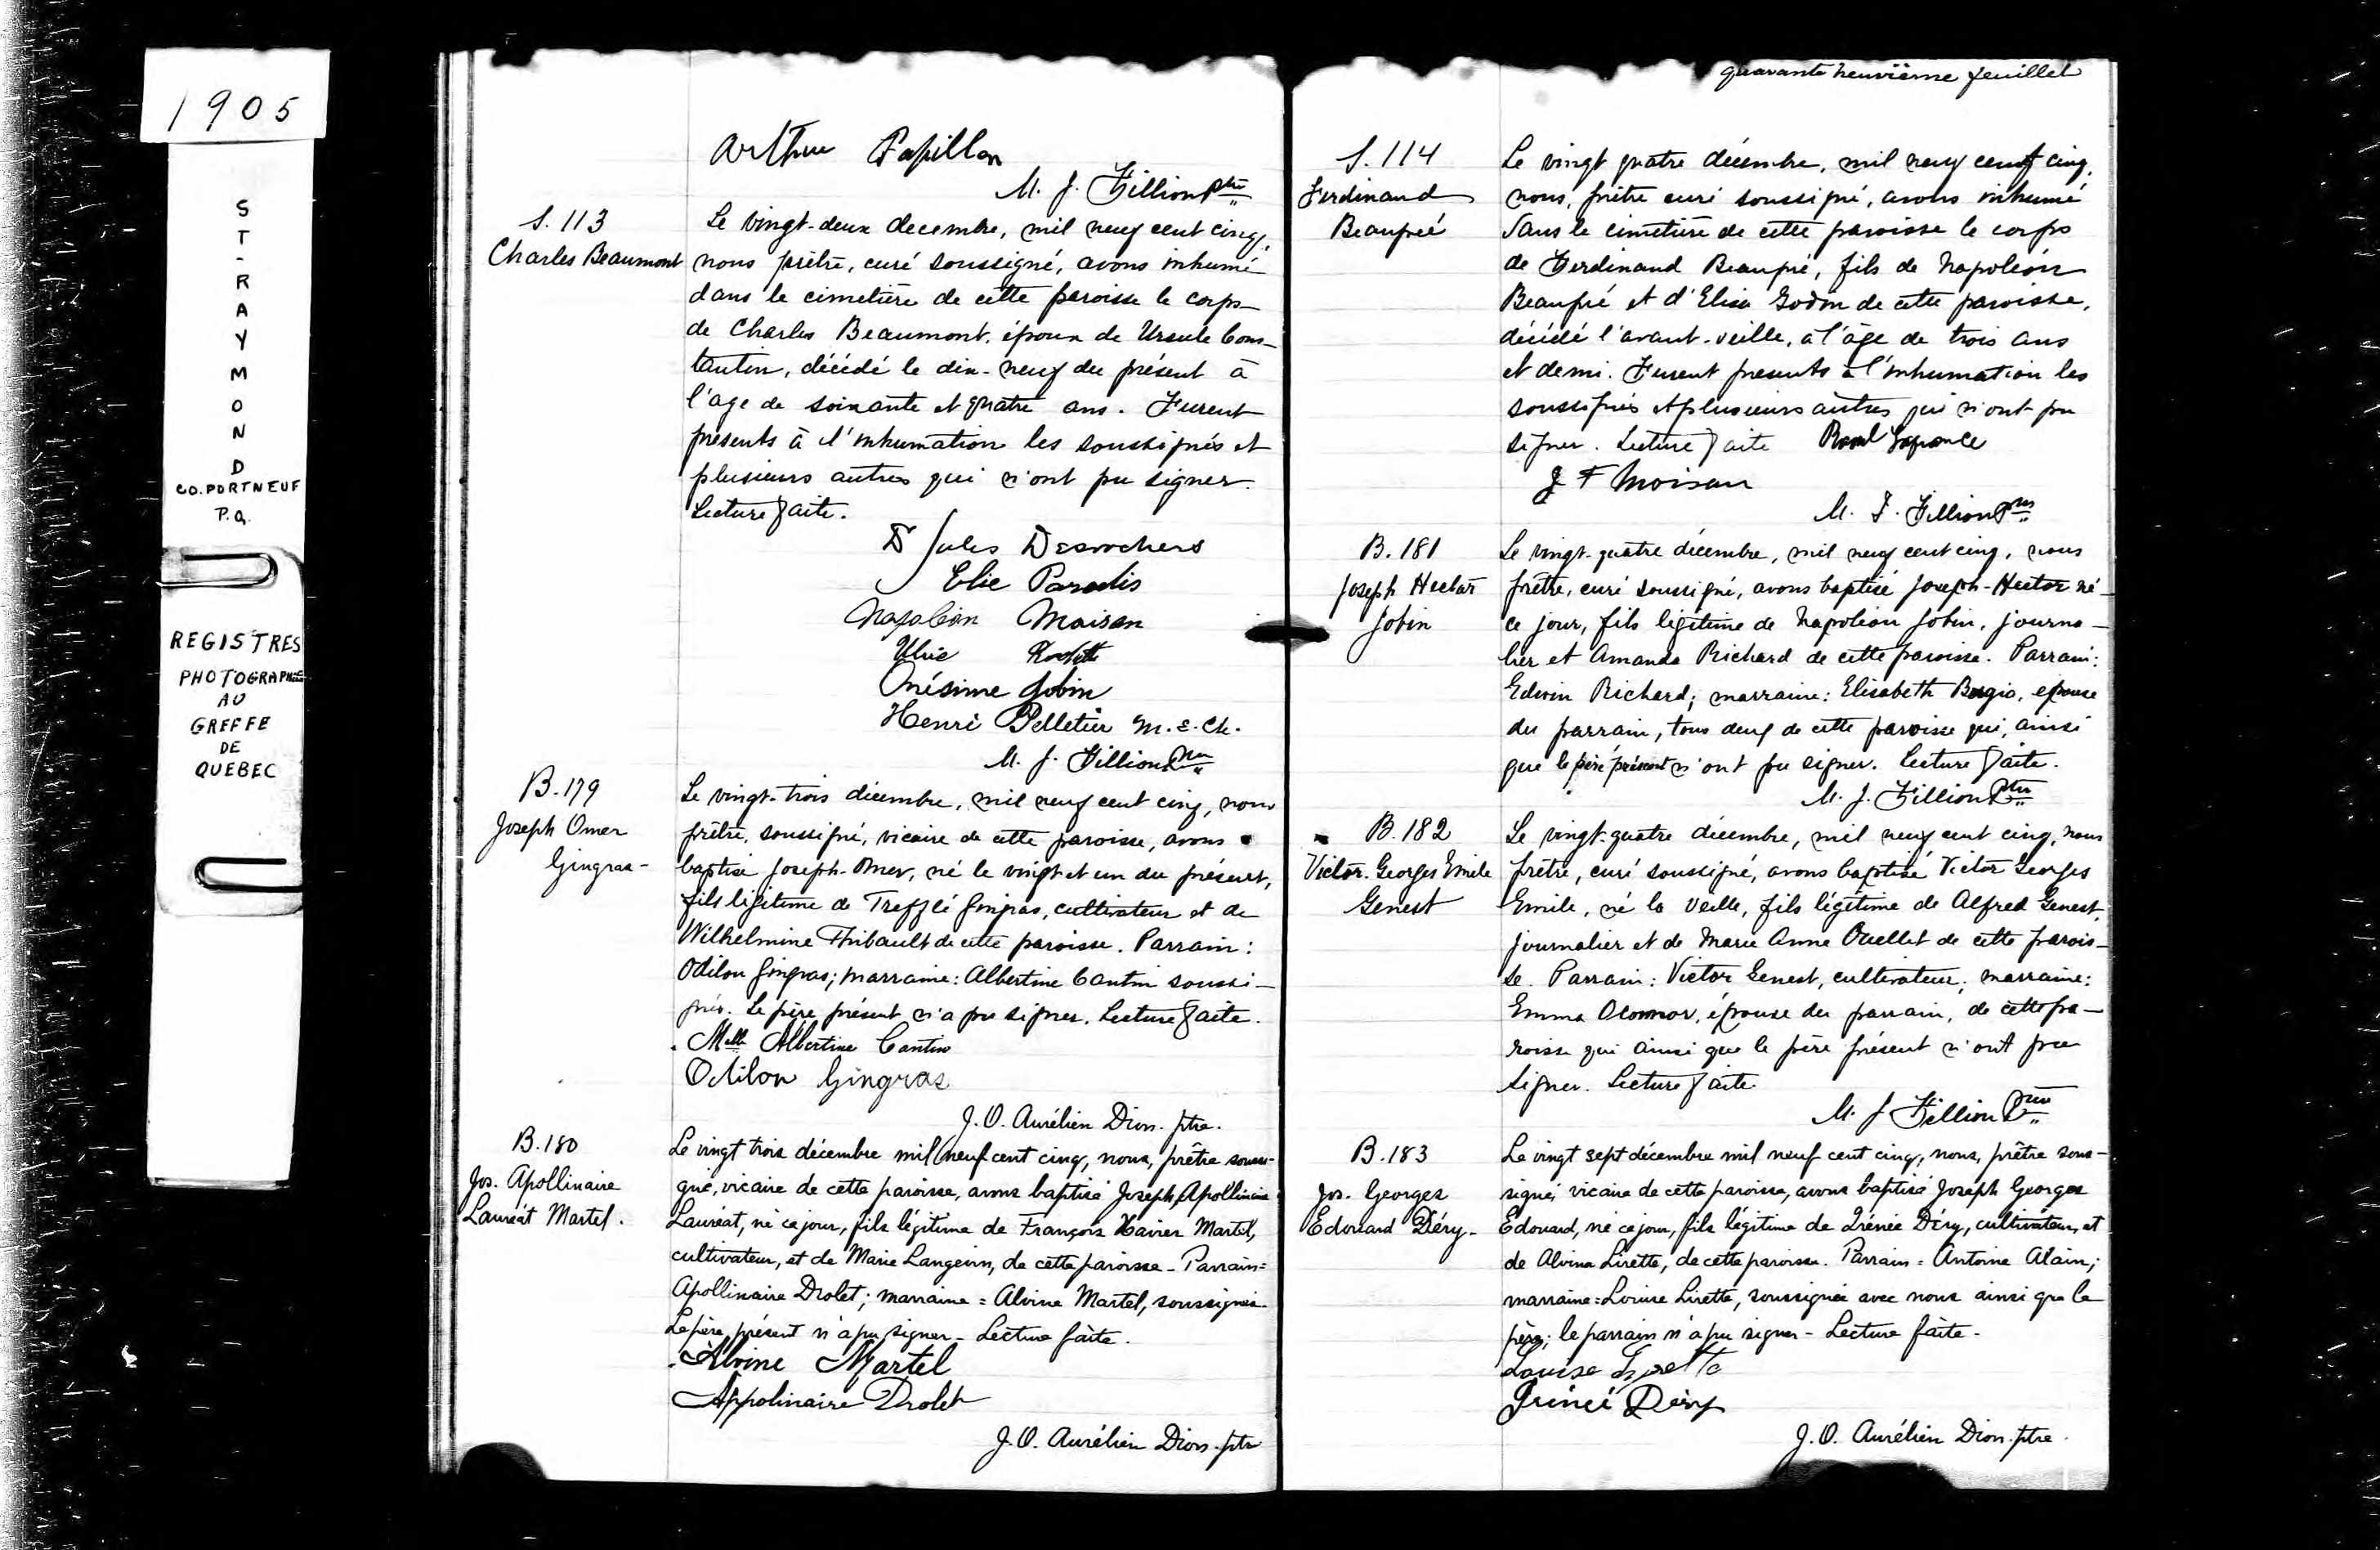 1905
ST-RAYMOND
CO. PORTNEUF
P.Q.
REGISTRES
PHOTOGRAPHIÉS
AU
GREFFE
DE
QUEBEC
Arthur Papillon
M. J. Fillion Ptre
S. 113
Charles Beaumont
Le vingt-deux decembre, mil neuf cent cinq,
nous prêtre, curé soussigné, avons inhumé
dans le cimetière de cette paroisse le corps
de Charles Beaumont, époux de Ursule Cons-
tantin, décédé le dix-neuf du présent à
l'age de soixante et quatre ans. Furent
présents à l'inhumation les soussignés et
plusieurs autres qui n'ont pu signer.
Lecture faite.
D Jules Desrochers
Elie Paradis
Napoléon Moisan
Ulric
Onésime Jobin
Henri Pelletier M.E.Ch.
M. J. Fillion Ptre
B. 179
Joseph Omer
Gingras-
Le vingt-trois décembre, mil neuf cent cinq, nous
prêtre, soussigné, vicaire de cette paroisse, avons
baptisé Joseph-Omer, né le vingt et un du présent,
fils légitime de Trefflé Gingras, cultivateur et de
Wilhelmine Thibault de cette paroisse. Parrain:
Odilon Gingras; marraine: Albertine Cantin soussi-
gnés. Le père présent n'a pu signer. Lecture faite.
Melle Albertine Cantin
Odilon Gingras
J.O. Aurélien Dion. ptre.
B. 180
Jos. Apollinaire
Lauréat Martel.
Le vingt trois décembre mil neuf cent cinq, nous, prêtre soussi-
gné, vicaire de cette paroisse, avons baptisé Joseph, Apollinaire
Lauréat, né ce jour, fils légitime de François Xavier Martel,
cultivateur, et de Marie Langevin, de cette paroisse - Parrain=
Apollinaire Drolet; marraine = Alvine Martel, soussignés.
Le père présent n'a pu signer - Lecture faite.
Alvine Martel
Appolinaire Drolet
J.O. Aurélien Dion. ptre
quarante neuvième feuillet
S. 114
Ferdinand
Beaupré
Le vingt quatre décembre, mil neuf cent cinq,
nous, prêtre curé soussigné, avons inhumé
dans le cimetière de cette paroisse le corps
de Ferdinand Beaupré, fils de Napoléon
Beaupré et d'Elisa Godin de cette paroisse,
décédé l'avant-veille, à l'âge de trois ans
et demi. Furent presents à l'inhumation les
soussignés et plusieurs autres qui n'ont pu
signer. Lecture faite
J F Moisan
M. J. Fillion Ptre
B. 181
Joseph Hector
Jobin
Le vingt-quatre décembre, mil neuf cent cinq, nous
prêtre, curé soussigné, avons baptisé Joseph-Hector né
ce jour, fils légitime de Napoléon Jobin, journa-
lier et Amanda Richard de cette paroisse. Parrain:
Edwin Richard; marraine: Elisabeth épouse
du parrain, tous deux de cette paroisse qui, ainsi
que le père présent n'ont pu signer. Lecture faite.
M. J. Fillion Ptre
B. 182
Victor. Georges Emile
Genest
Le vingt-quatre décembre, mil neuf cent cinq, nous
prêtre, curé soussigné, avons baptisé Victor Georges
Emile, né la veille, fils légitime de Alfred Genest,
journalier et de Marie Anne Ouellet de cette parois-
se. Parrain: Victor Genest, cultivateur; marraine:
Emma Oconnor, épouse du parrain, de cette pa-
roisse qui ainsi que le père présent n'ont pu
signer. Lecture faite.
M. J Fillion Ptre
B. 183
Jos. Georges
Edouard Déry-
Le vingt sept décembre mil neuf cent cinq, nous, prêtre sous-
signé, vicaire de cette paroisse, avons baptisé Joseph Georges
Edouard, né ce jour, fils légitime de Irénée Déry, cultivateur, et
de Alvina Lirette, de cette paroisse. Parrain = Antoine Alain;
marraine = Louise Lirette, soussignée avec nous ainsi que le
père; le parrain n'a pu signer - Lecture faite -
Louise Lirette
Iréné Déry
J.O. Aurélien Dion. ptre.